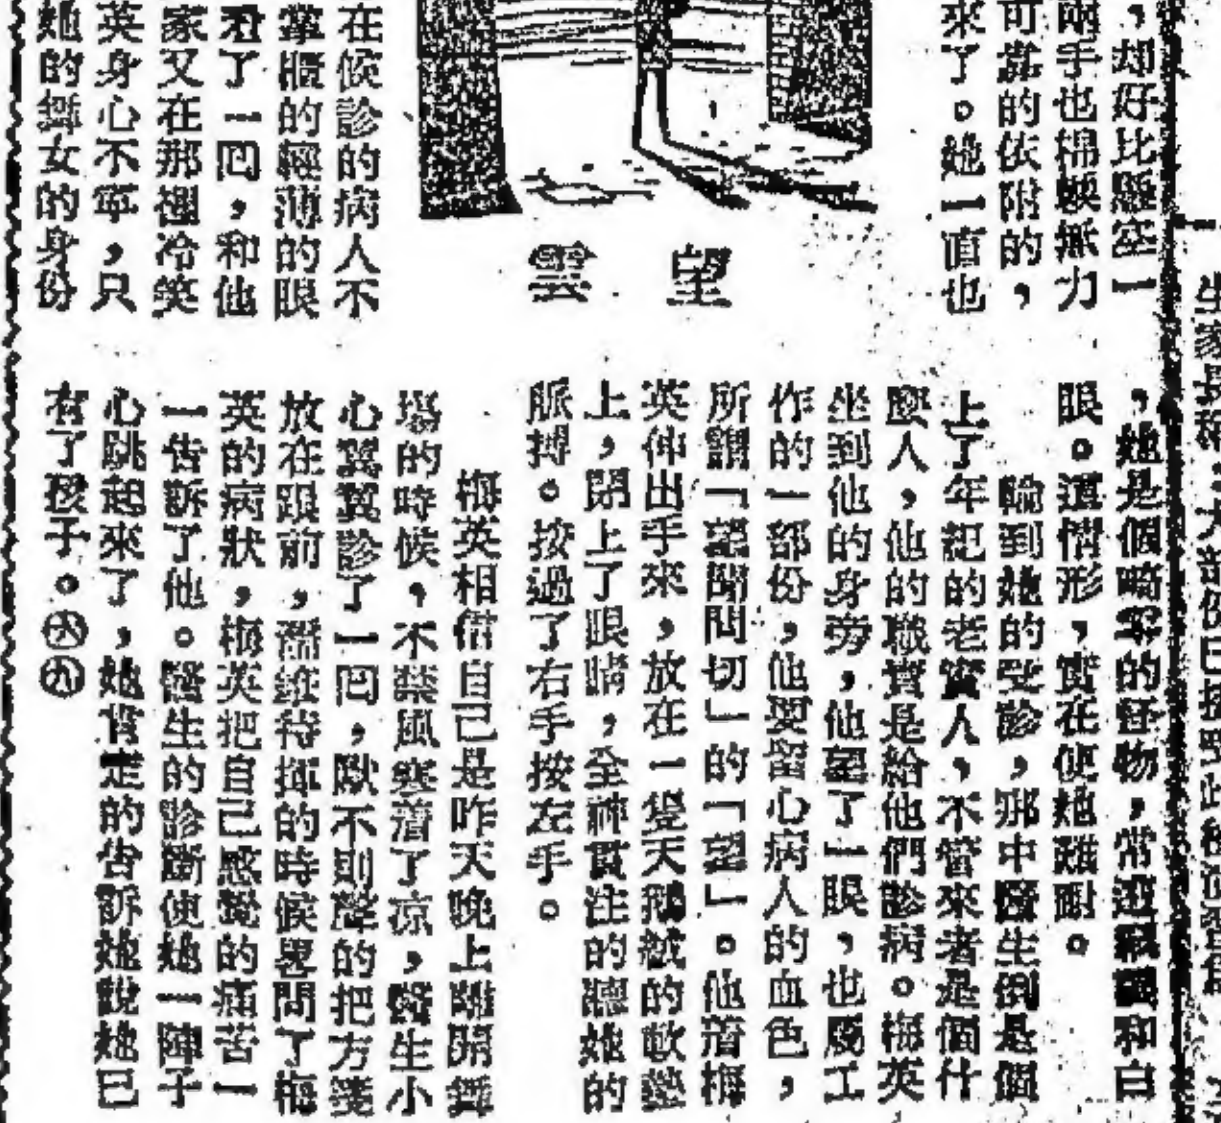 ，却好比懸空一
兩手也棉軟無力
可靠的依附的，
來了。她一直也
望雲
在候診的病人不
掌櫃的輕薄的眼
君了一囘，和他
家又在那裡冷笑
英身心不寧，只
她的舞女的身份
，她是個畸零的怪物，常遭和白
眼。這情形，實在使她難耐。
輪到她的受診，那中醫生倒是個
上了年紀的老實人，不管來者是個什
麽人，他的職責是給他們診病。梅英
坐到他的身旁，他望了一眼，也屬工
作的一部份，他要留心病人的血色，
所謂「望聞問切」的「望」。他着梅
英伸出手來，放在一隻天鵝絨的軟墊
上，閉上了眼睛，全神貫注的聽她的
脈搏。按過了右手按左手。
梅英相信自己是昨天晚上離開舞
塲的時候，不禁風寒着了凉，醫生小
心翼翼診了一囘，默不則聲的把方箋
放在跟前，濡維待揮的時候畧問了梅
英的病狀，梅英把自己感覺的痛苦一
一告訴了他。醫生的診斷使她一陣子
心跳起來了，她肯定的告訴她說她已
有了孩子。㊅㊈